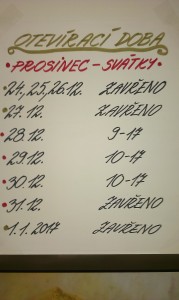 OTEVÍRACÍ DOBA
• PROSINEC – SVÁTKY •
• 24., 25., 26.12. ZAVŘENO
• 27.12. ZAVŘENO
• 28.12. 9-17
• 29.12. 10-17
• 30.12. 10-17
• 31.12. ZAVŘENO
• 1.1.2017 ZAVŘENO